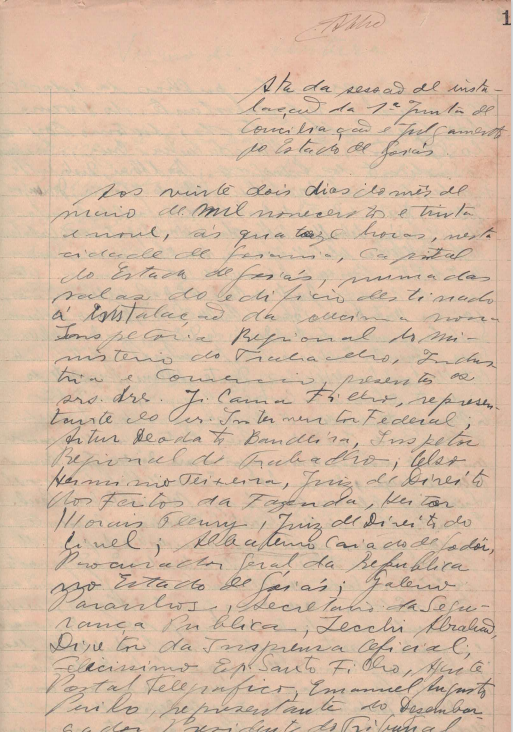 1
Ata da sessão de insta-
lação da 1ª Junta de
Conciliação e Julgamento
do Estado de Goiás
Aos vinte dois dias do mês de
maio de mil novecentos e trinta
e nove, ás quatorze horas, nesta
cidade de Goiania, Capital
do Estado de Goiás, numa das
salas do edificio destinado
á instalação da decima nona
Inspetoria Regional do Mi-
nisterio do Trabalho, Indus
tria e Comercio, presentes os
srs. drs. J. Camara Filho, represen-
tante do sr. Interventor Federal,
Artur Deodato Bandeira, Inspetor
Regional do Trabalho, Celso
Herminio Teixeira, Juiz de Direito
dos Feitos da Fazenda, Heitor
Morais Fleury, Juiz de Direito do
Civel; Albatenio Caiado de Godói,
Procurador Geral da Republica
no Estado de Goiás; Galeno
Paranhos, Secretario da Segu-
rança Publica, Zecchi Abrahão,
Diretor da Imprensa Oficial,
Felicissimo Esp. Santo Filho,
Postal Telegrafico, Emanuel Augusto
Perillo, representante do Desembar-
gador Presidente do Tribunal